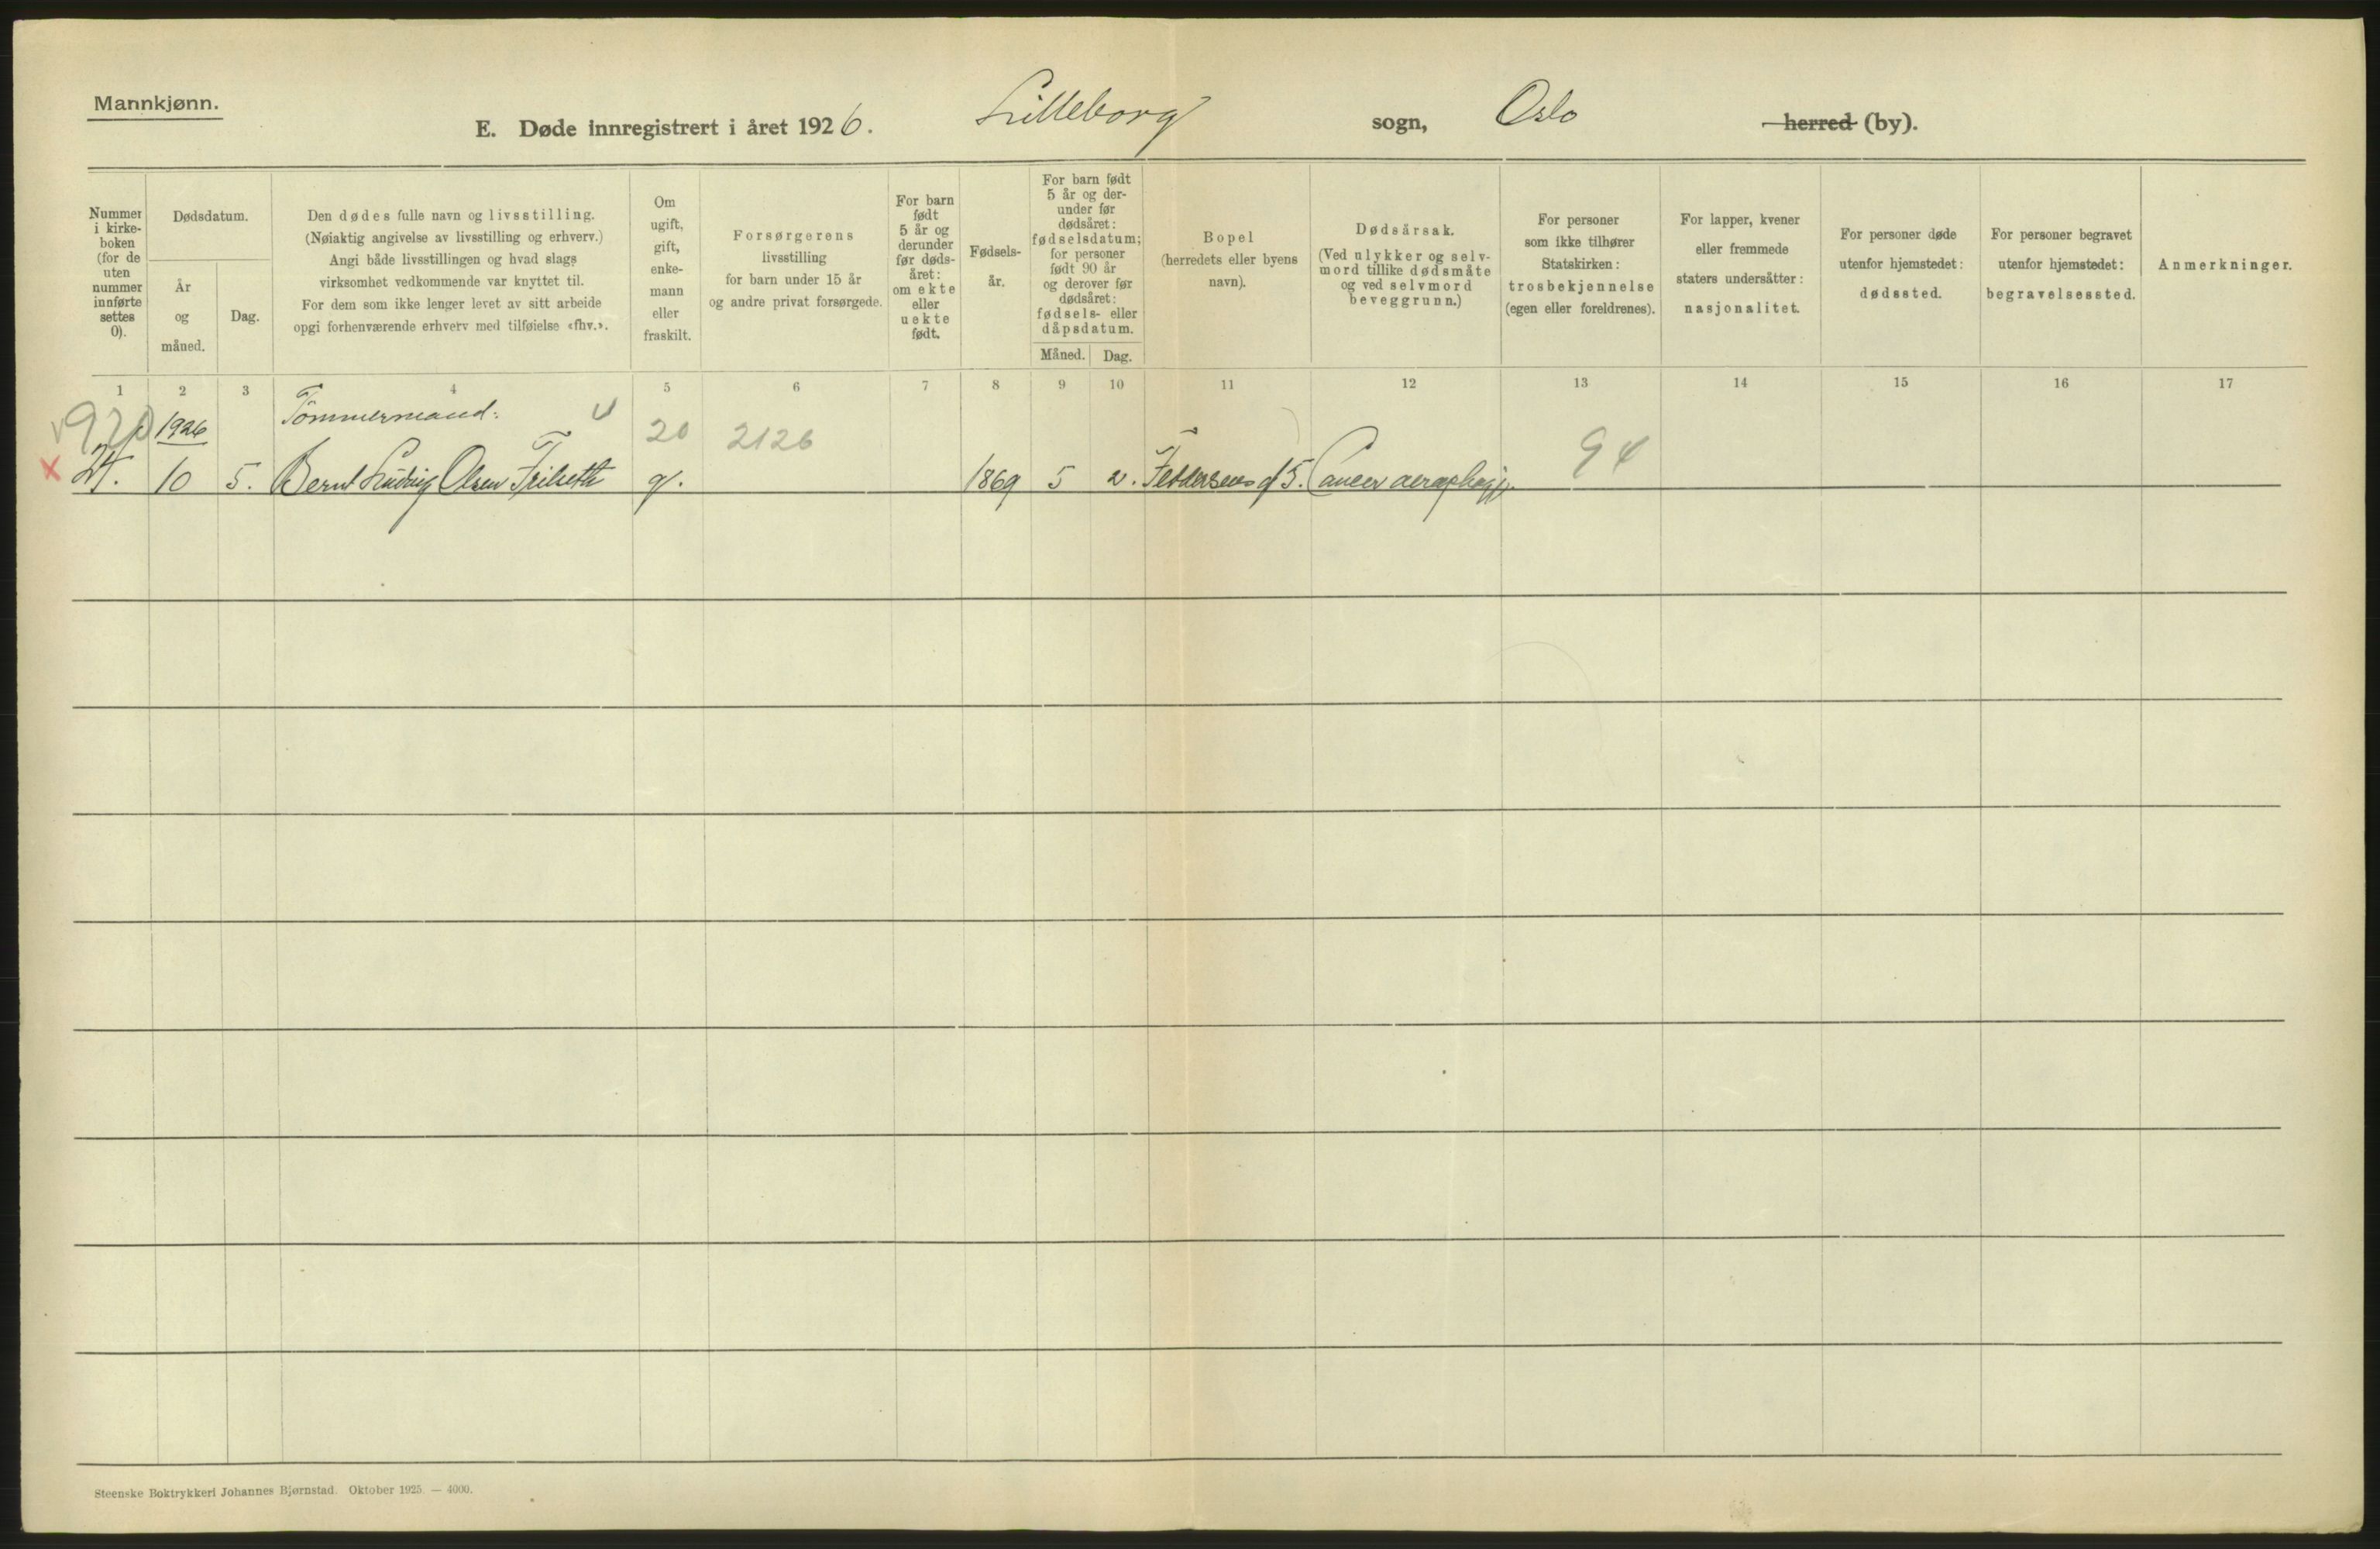 Mannkjønn.
E. Døde innregistrert i året 1926. Lilleborg sogn, Oslo herred (by).
Nummer
i kirke-
boken
(for de
uten
nummer
innførte
settes
0).
Dødsdatum.
År
og
måned.
Dag.
Den dødes fulle navn og livsstilling.
(Nøiaktig angivelse av livsstilling og erhverv.)
Angi både livsstillingen og hvad slags
virksomhet vedkommende var knyttet til.
For dem som ikke lenger levet av sitt arbeide
opgi forhenværende erhverv med tilføielse «fhv.».
Om
ugift,
gift,
enke-
mann
eller
fraskilt.
Forsørgerens
livsstilling
for barn under 15 år
og andre privat forsørgede.
For barn
født
5 år og
derunder
før døds-
året:
om ekte
eller
uekte
født.
Fødsels-
år.
For barn født
5 år og der-
under før
dødsåret:
fødselsdatum;
for personer
født 90 år
og derover før
dødsåret:
fødsels- eller
dåpsdatum.
Måned. Dag.
Bopel
(herredets eller byens
navn).
Dødsårsak.
(Ved ulykker og selv-
mord tillike dødsmåte
og ved selvmord
beveggrunn.)
For personer
som ikke tilhører
Statskirken:
trosbekjennelse
(egen eller foreldrenes).
For lapper, kvener
eller fremmede
staters undersåtter:
nasjonalitet.
For personer døde
utenfor hjemstedet:
dødssted.
For personer begravet
utenfor hjemstedet:
begravelsessted.
Anmerkninger.
1 2 3 4 5 6 7 8 9 10 11 12 13 14 15 16 17
1926 Tömmermand: 20 2126 94
10 5. Bernt Ludvig Olsen g. 1869 5 2. Feddersens g 5. Cancer
Steenske Boktrykkeri Johannes Bjørnstad. Oktober 1925. — 4000.